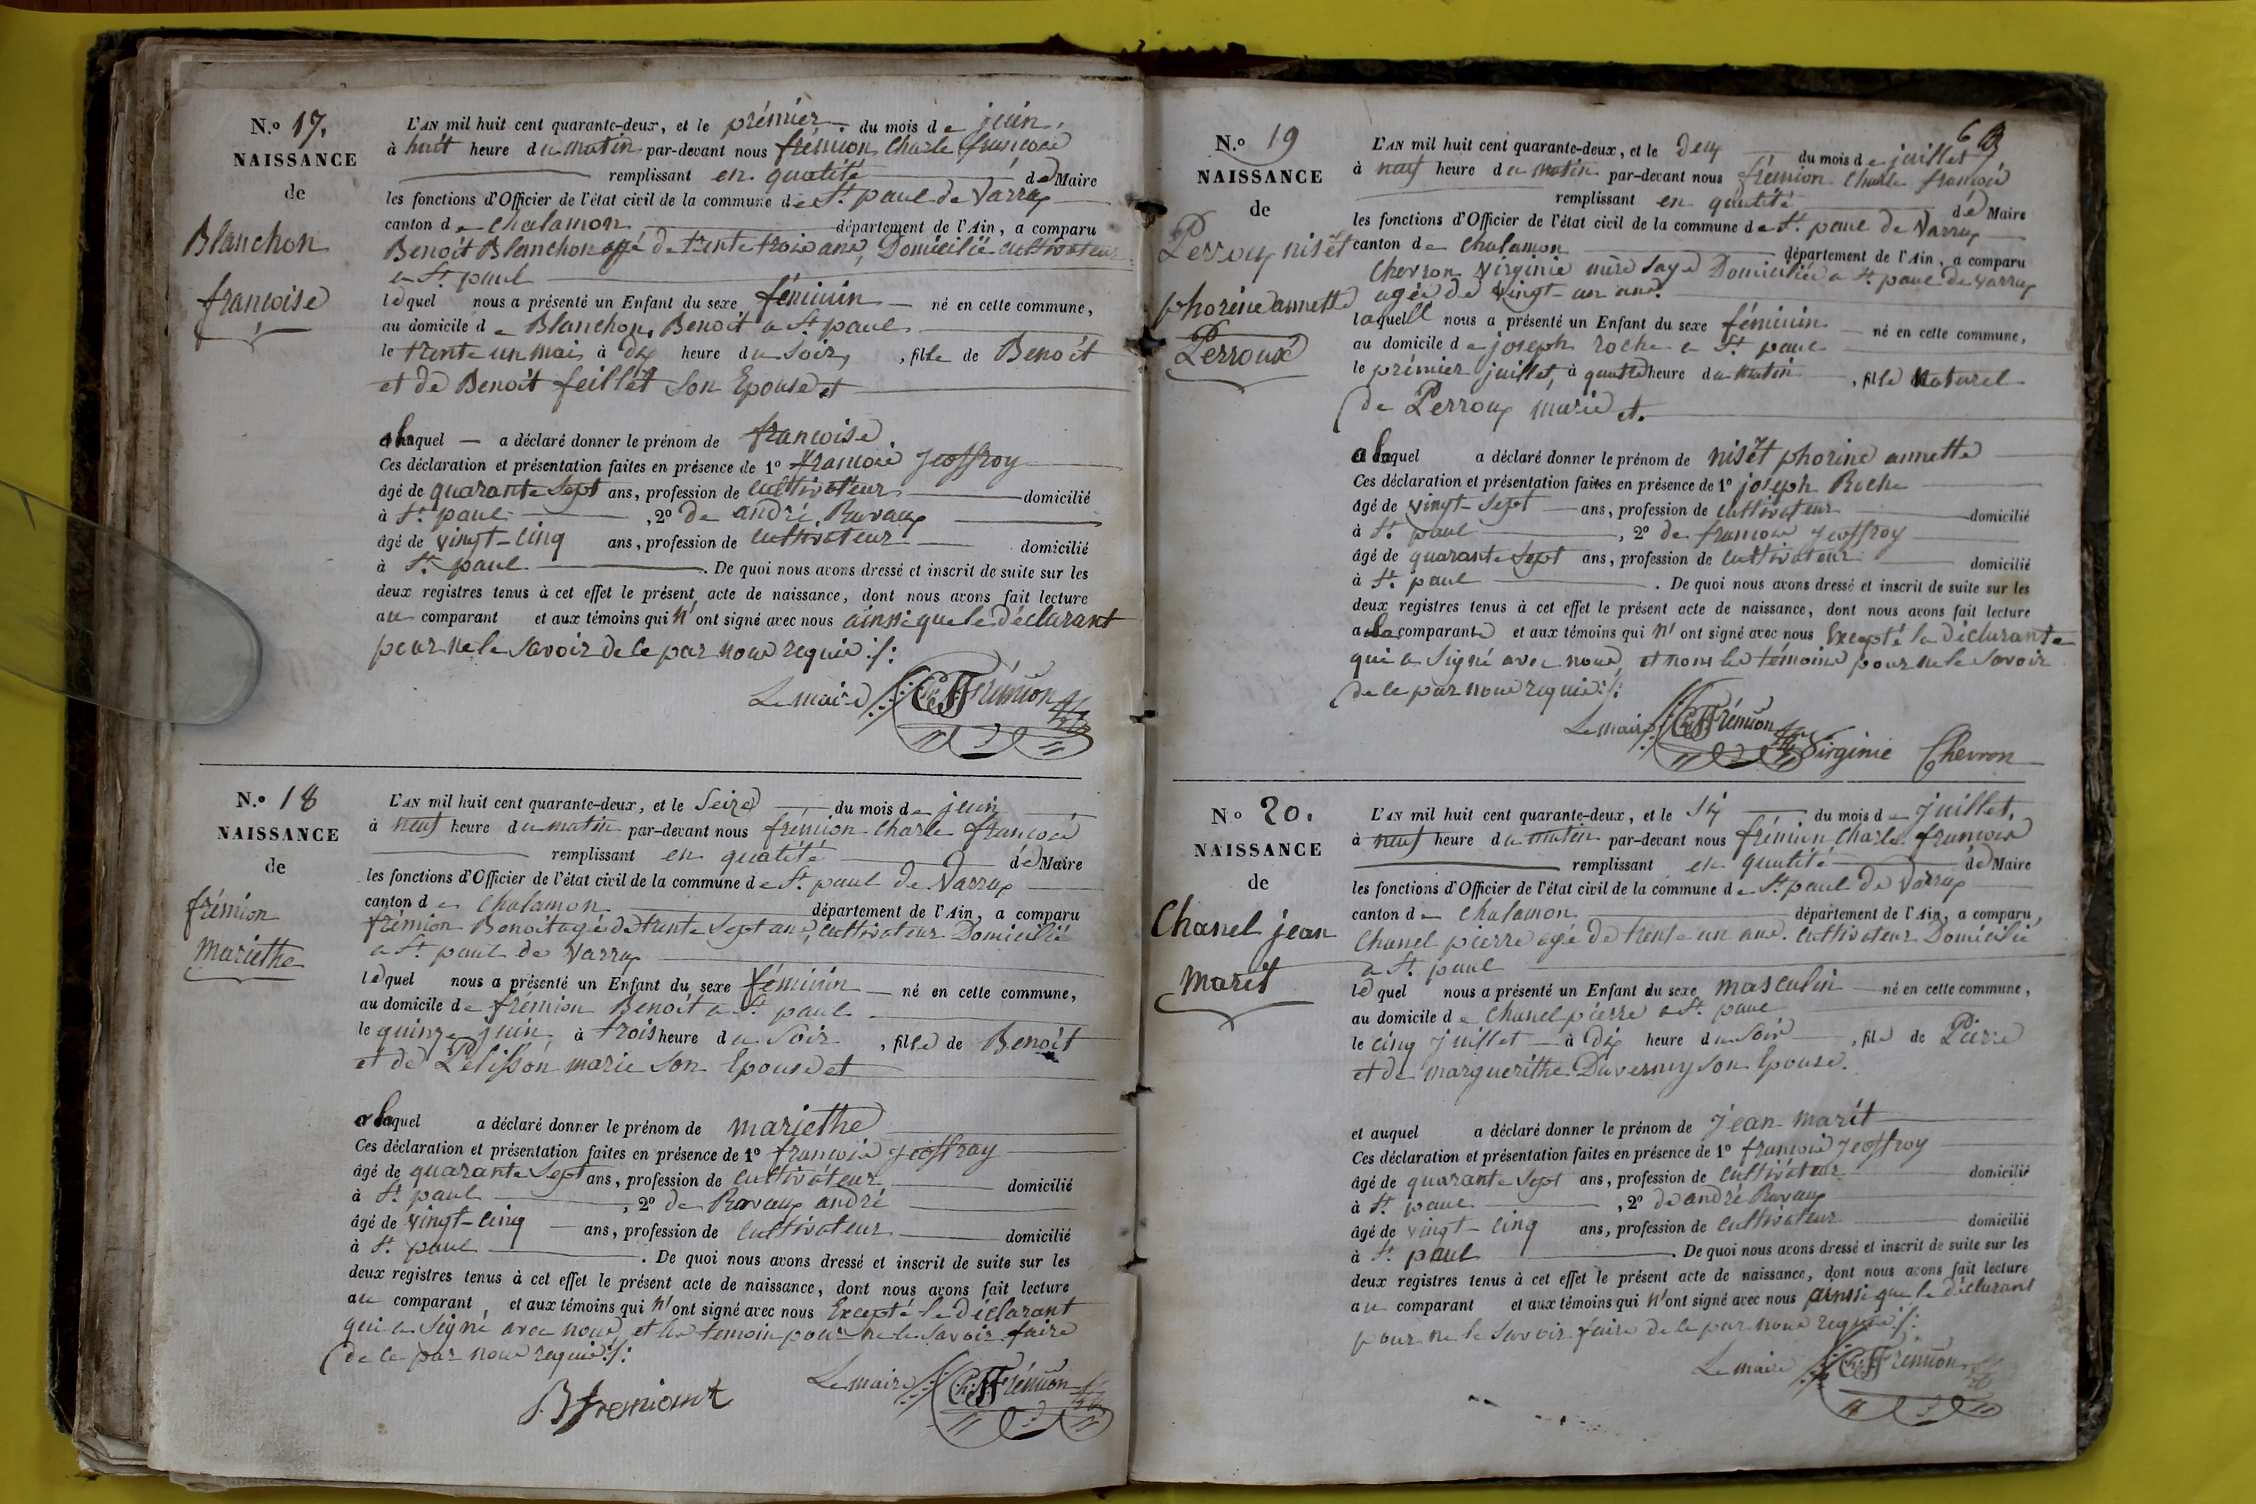 N.º 17.
NAISSANCE
de
Blanchon
francoise
L'AN mil huit cent quarante-deux, et le prémier du mois de juin,
à huit heure du matin par-devant nous frémion Charle francois
remplissant en quatité de Maire
les fonctions d'Officier de l'état civil de la commune de St. paul de Varrax
canton de Chalamon département de l'Ain, a comparu
Benoit Blanchon agé de trente trois ans, Domicilié cultivateur
a St. paul
lequel nous a présenté un Enfant du sexe féminin né en cette commune,
au domicile de Blanchon, Benoit a St. paul
le trente un mai à dix heure du Soir, , fille de Benoit
et de Benoit feillet Son Epouse et
a laquel a déclaré donner le prénom de francoise
Ces déclaration et présentation faites en présence de 1º francois Jeoffroy
âgé de quarante Sept ans, profession de cultivateur domicilié
à St. paul , 2º de andré Ravaux
âgé de vingt-cinq ans, profession de cultivateur domicilié
à St. paul . De quoi nous avons dressé et inscrit de suite sur les
deux registres tenus à cet effet le présent acte de naissance, dont nous avons fait lecture
au comparant et aux témoins qui n'ont signé avec nous ainsi que le déclarant
pour ne le Savoir de ce par nous requis ./:
Le maire Ch. F. Frémion
N.º 18
NAISSANCE
de
frémion
Mariethe
L'AN mil huit cent quarante-deux, et le Seize du mois de juin
à neuf heure du matin par-devant nous frémion Charle francois
remplissant en quatité de Maire
les fonctions d'Officier de l'état civil de la commune de St. paul de Varrax
canton de Chalamon département de l'Ain, a comparu
frémion Benoit agé de trente Sept ans, cultivateur Domicilié
a St. paul de Varrax
lequel nous a présenté un Enfant du sexe féminin né en cette commune,
au domicile de frémion Benoit a St. paul
le quinze juin, à trois heure du Soir , fille de Benoit
et de Pelisson marie Son Epouse et
a laquel a déclaré donner le prénom de mariethe
Ces déclaration et présentation faites en présence de 1º francois Jeoffray
âgé de quarante Sept ans, profession de cultivateur domicilié
à St. paul , 2º de Ravaux andré
âgé de vingt-cinq ans, profession de cultivateur domicilié
à St. paul . De quoi nous avons dressé et inscrit de suite sur les
deux registres tenus à cet effet le présent acte de naissance, dont nous avons fait lecture
au comparant, et aux témoins qui n'ont signé avec nous Excepté le déclarant
qui a Signé avec nous et les temoin pour ne le Savoir faire
de ce par nous requis ./:
Le maire Ch. F. Frémion
B fremiont
6
N.º 19
NAISSANCE
de
Perroux nisét
phorine annette
Perroux
L'AN mil huit cent quarante-deux, et le deux du mois de juillet
à neuf heure du matin par-devant nous frémion Charle francois
remplissant en qutité de Maire
les fonctions d'Officier de l'état civil de la commune de St. paul de Varrax
canton de Chalamon département de l'Ain, a comparu
Chevron Virginie mère Sage Domiciliée a St. paul de Varrax
agée de vingt-un ans.
laquell nous a présenté un Enfant du sexe féminin né en cette commune,
au domicile de joseph roche a St. paul
le prémier juillet, à quatre heure du matin , fille Naturel
de Perroux marie et.
a laquel a déclaré donner le prénom de nisét phorine annette
Ces déclaration et présentation faites en présence de 1º joseph Roche
âgé de vingt-Sept ans, profession de cultivateur domicilié
à St. paul , 2º de francois Jeoffroy
âgé de quarante Sept ans, profession de cultivateur domicilié
à St. paul . De quoi nous avons dressé et inscrit de suite sur les
deux registres tenus à cet effet le présent acte de naissance, dont nous avons fait lecture
a la comparante et aux témoins qui n'ont signé avec nous Excepté la déclarante
qui a Signé avec nous, et nons les témoins pour ne le Savoir
de ce par nous requis ./:
Le maire Ch. F. Frémion Virginie Chevron
Nº 20.
NAISSANCE
de
Chanel jean
Marit
L'AN mil huit cent quarante-deux, et le Six du mois de juillet,
à neuf heure du matin par-devant nous frémion Charle francois
remplissant en quatité de Maire
les fonctions d'Officier de l'état civil de la commune de St. paul de Varrax
canton de Chalamon département de l'Ain, a comparu,
Chanel pierre agé de trente un ans. cultivateur Domicilié
a St. paul
lequel nous a présenté un Enfant du sexe masculin né en cette commune,
au domicile de Chanel pierre a St. paul
le cinq juillet à dix heure du Soir , fils de Pierre
et de marguerithe Duverney Son Epouse.
et auquel a déclaré donner le prénom de jean marit
Ces déclaration et présentation faites en présence de 1º francois Jeoffroy
âgé de quarante Sept ans, profession de cultivateur domicilié
à St. paul , 2º de andré Ravaux
âgé de vingt-cinq ans, profession de cultivateur domicilié
à St. paul . De quoi nous avons dressé et inscrit de suite sur les
deux registres tenus à cet effet le présent acte de naissance, dont nous avons fait lecture
au comparant et aux témoins qui n'ont signé avec nous ainsi que le déclarant
pour ne le Savoir faire de ce par nous requis ./:
Le maire Ch. F. Frémion